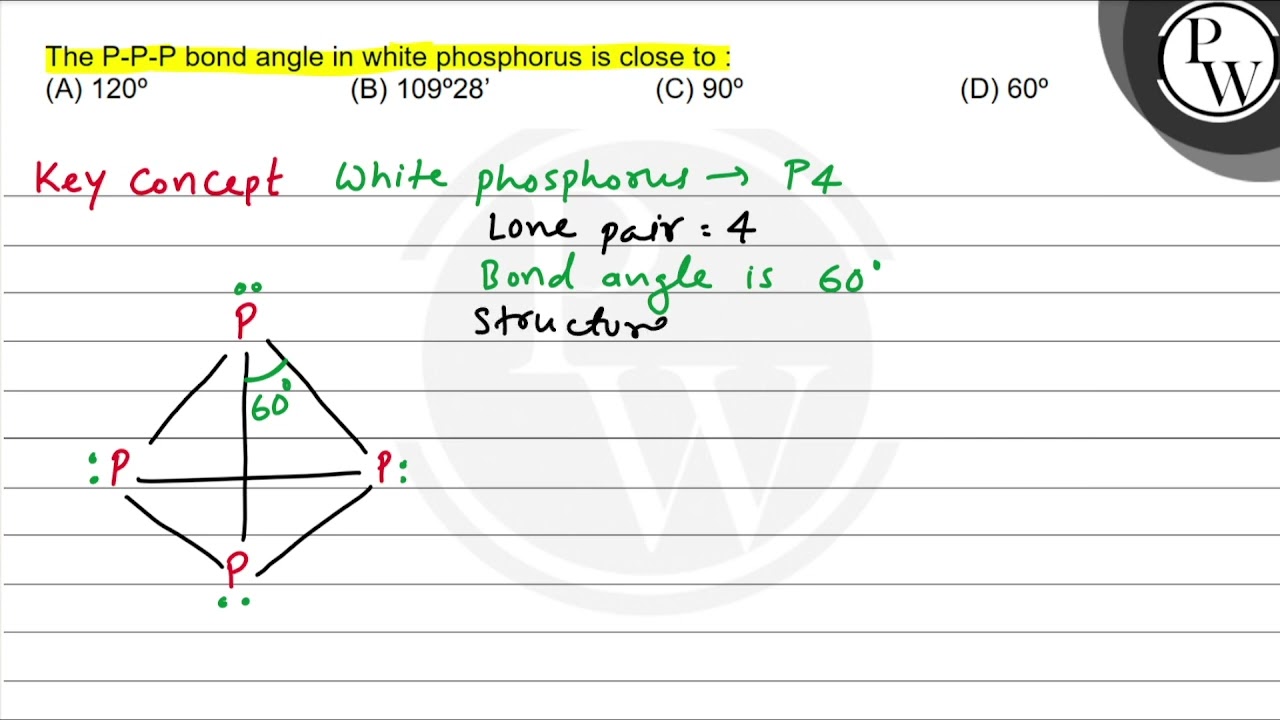 The P-P-P bond angle in white phosphorus is close to :
(A) 120º (B) 109º28’ (C) 90º (D) 60º
P
W
Key concept White phosphorus → P4
Lone pair = 4
Bond angle is 60°
Structure
P
60°
: P P :
P
P W